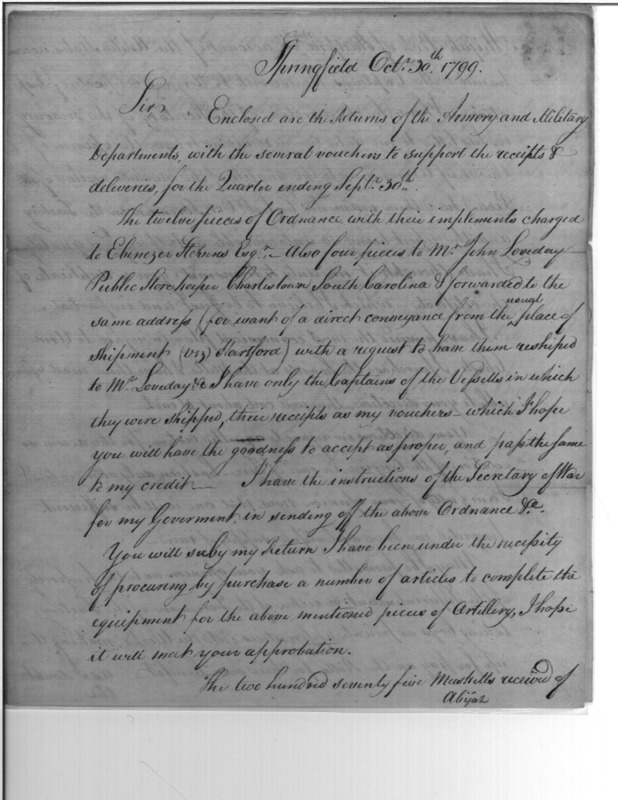 Springfield Octr. 30.th 1799.
Sir, Enclosed are the Returns of the Armory and Military
Departments, with the several vouchers to support the receipts &
deliveries, for the Quarter ending Septr. 30.th.
The twelve pieces of Ordnance with their implements charged
to Ebenezer Stevens Esqr. — Also four pieces to Mr. John Loveday
Public Store keeper Charlestown South Carolina & forwarded to the
same address (for want of a direct conveyance from the usual place of
shipment (viz Hartford) with a request to have them reshiped
to Mr. Loveday &c I have only the Captains of the Vessells in which
they were shipped, their receipts as my vouchers — which I hope
you will have the goodness to accept as proper, and pass the same
to my credit — I have the instructions of the Secretary of War
for my Goverment, in sending off the above Ordnance &c.
You will see by my Return I have been under the necessity
of procuring by purchase a number of articles to complete the
equipment for the above mentioned pieces of Artillery, I hope
it will meet your approbation.
The two hundred seventy five Musketts received of
Abijah